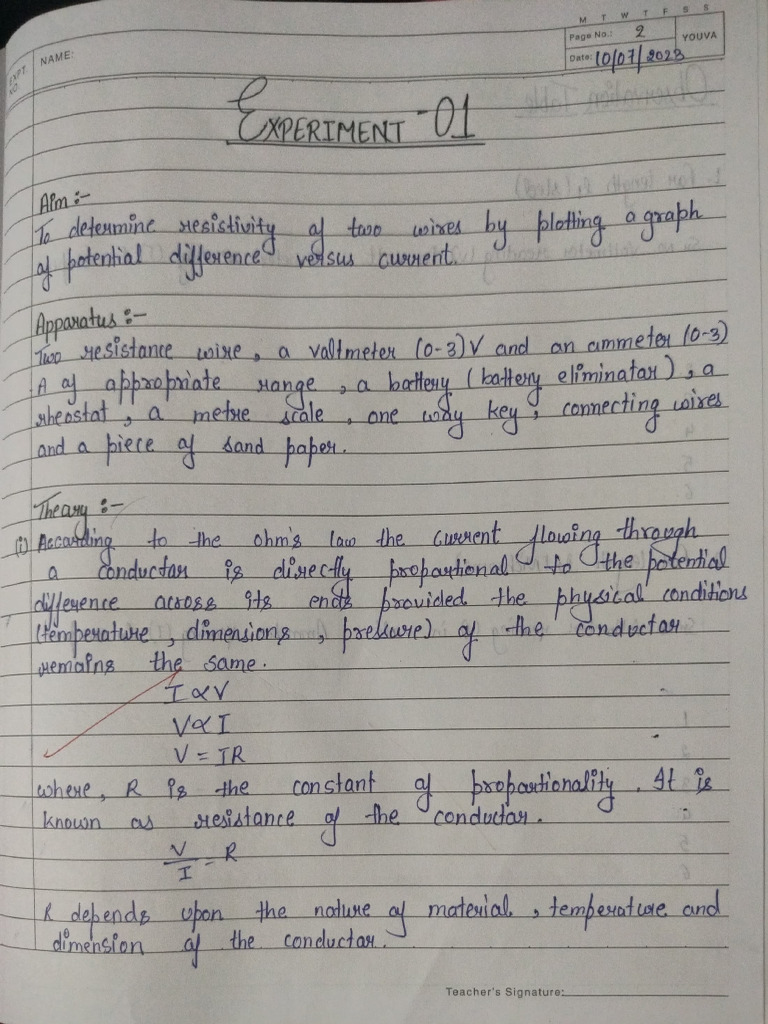 M T W T F S S
Page No.: 2
YOUVA
Date: 10/07/2023
EXPT. NO.
NAME:
EXPERIMENT-01
Aim :-
To determine resistivity of two wires by plotting a graph
of potential difference versus current.
Apparatus :-
Two resistance wire, a voltmeter (0-3)V and an ammeter (0-3)
A of appropriate range, a battery (battery eliminator), a
rheostat, a metre scale, one way key, connecting wires
and a piece of sand paper.
Theory :-
(i) According to the ohm's law the current flowing through
a conductor is directly propartional to the potential
difference across its ends provided the physical conditions
(temperature, dimensions, pressure) of the conductor
remains the same.
I ∝ V
V ∝ I
V = IR
where, R is the constant of propartionality. It is
known as resistance of the conductor.
V/I = R
R depends upon the nature of material, temperature and
dimension of the conductor.
Teacher's Signature: